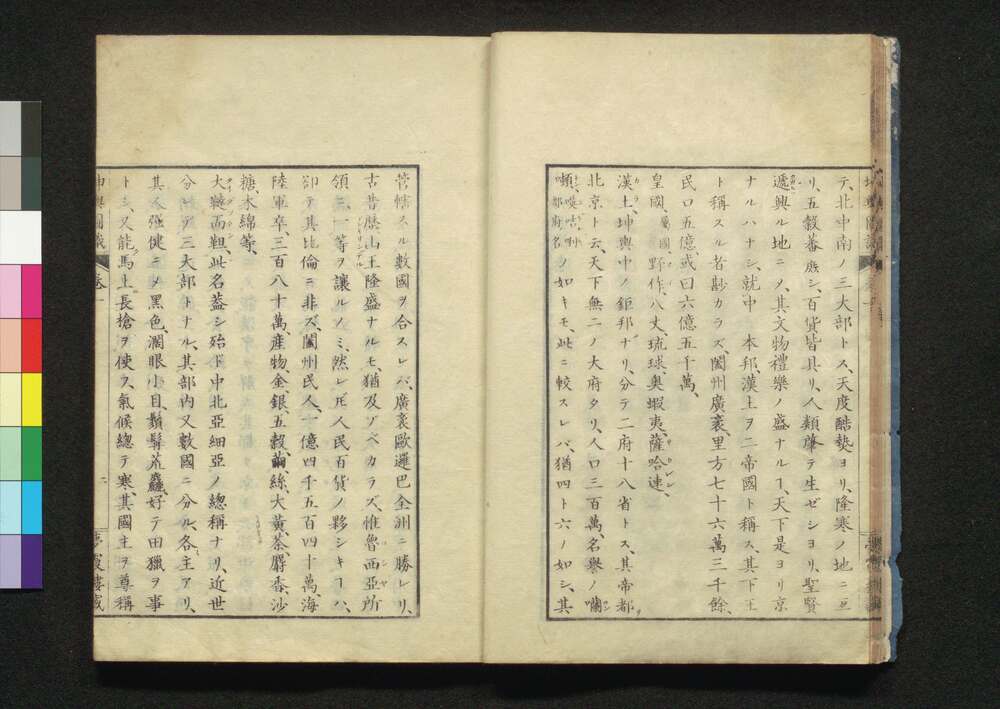 テ、北中南ノ三大部トス、天度酷熱ヨリ、隆寒ノ地ニ亘
リ、五穀蕃廡シ、百貨皆具リ、人類肇テ生ゼシヨリ、聖賢
遞興ル地ニノ、其文物禮樂ノ盛ナルヿ、天下是ヨリ京
ナルハナシ、就中 本邦、漢土ヲ二帝國ト稱ス、其下王
ト稱スル者尠カラズ、闔州廣袤里方七十六萬三千餘、
民口五億或曰六億五千萬、
皇國、屬國野作、八丈、琉球、奥蝦夷、薩哈連、
漢土、坤輿中ノ鉅邦ナリ、分テ二府十八省トス、其帝都
北京ト云、天下無二ノ大府タリ、人口三百萬、名譽ノ
ノ如キモ、此ニ較スレバ、猶四ト六ノ如シ、其
管轄スル數國ヲ合スレバ、廣袤歐邏巴全洲ニ勝レリ、
古昔歴山王隆盛ナルモ、猶及ブベカラズ、惟魯西亞所
領ニ一等ヲ讓ルノミ、然レ𪜈人民百貨ノ夥シキヿハ、
卻テ其比倫ニ非ズ、闔州民、人一億四千五百四十萬海
陸軍卒、三百八十萬、産物、金銀、五穀、繭、絲、大黄、茶、麝香、沙
糖、木綿等、
大韃而靼、此名蓋シ殆ド中北亞細亞ノ總稱ナリ、近世
分テ三大部トナル、其部内又數國ニ分ル、各主アリ、
其人強健ニノ黑色、濶眼小目、鬚髯荒麤、好テ田獵ヲ事
トシ、又能馬上長槍ヲ使フ、氣候總テ寒、其國主ヲ尊稱
坤輿圖識 卷一 二 夢霞樓藏